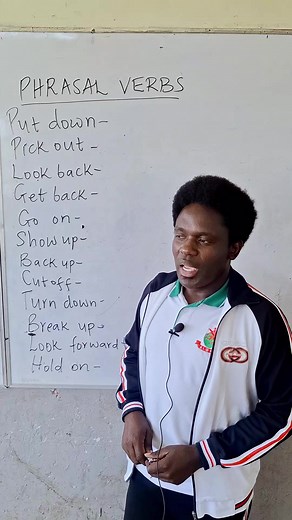 PHRASAL VERBS
Put down-
Pick out-
Look back-
Get back-
Go on-
Show up-
Back up-
Cut off-
Turn down-
Break up-
Look forward-
Hold on-